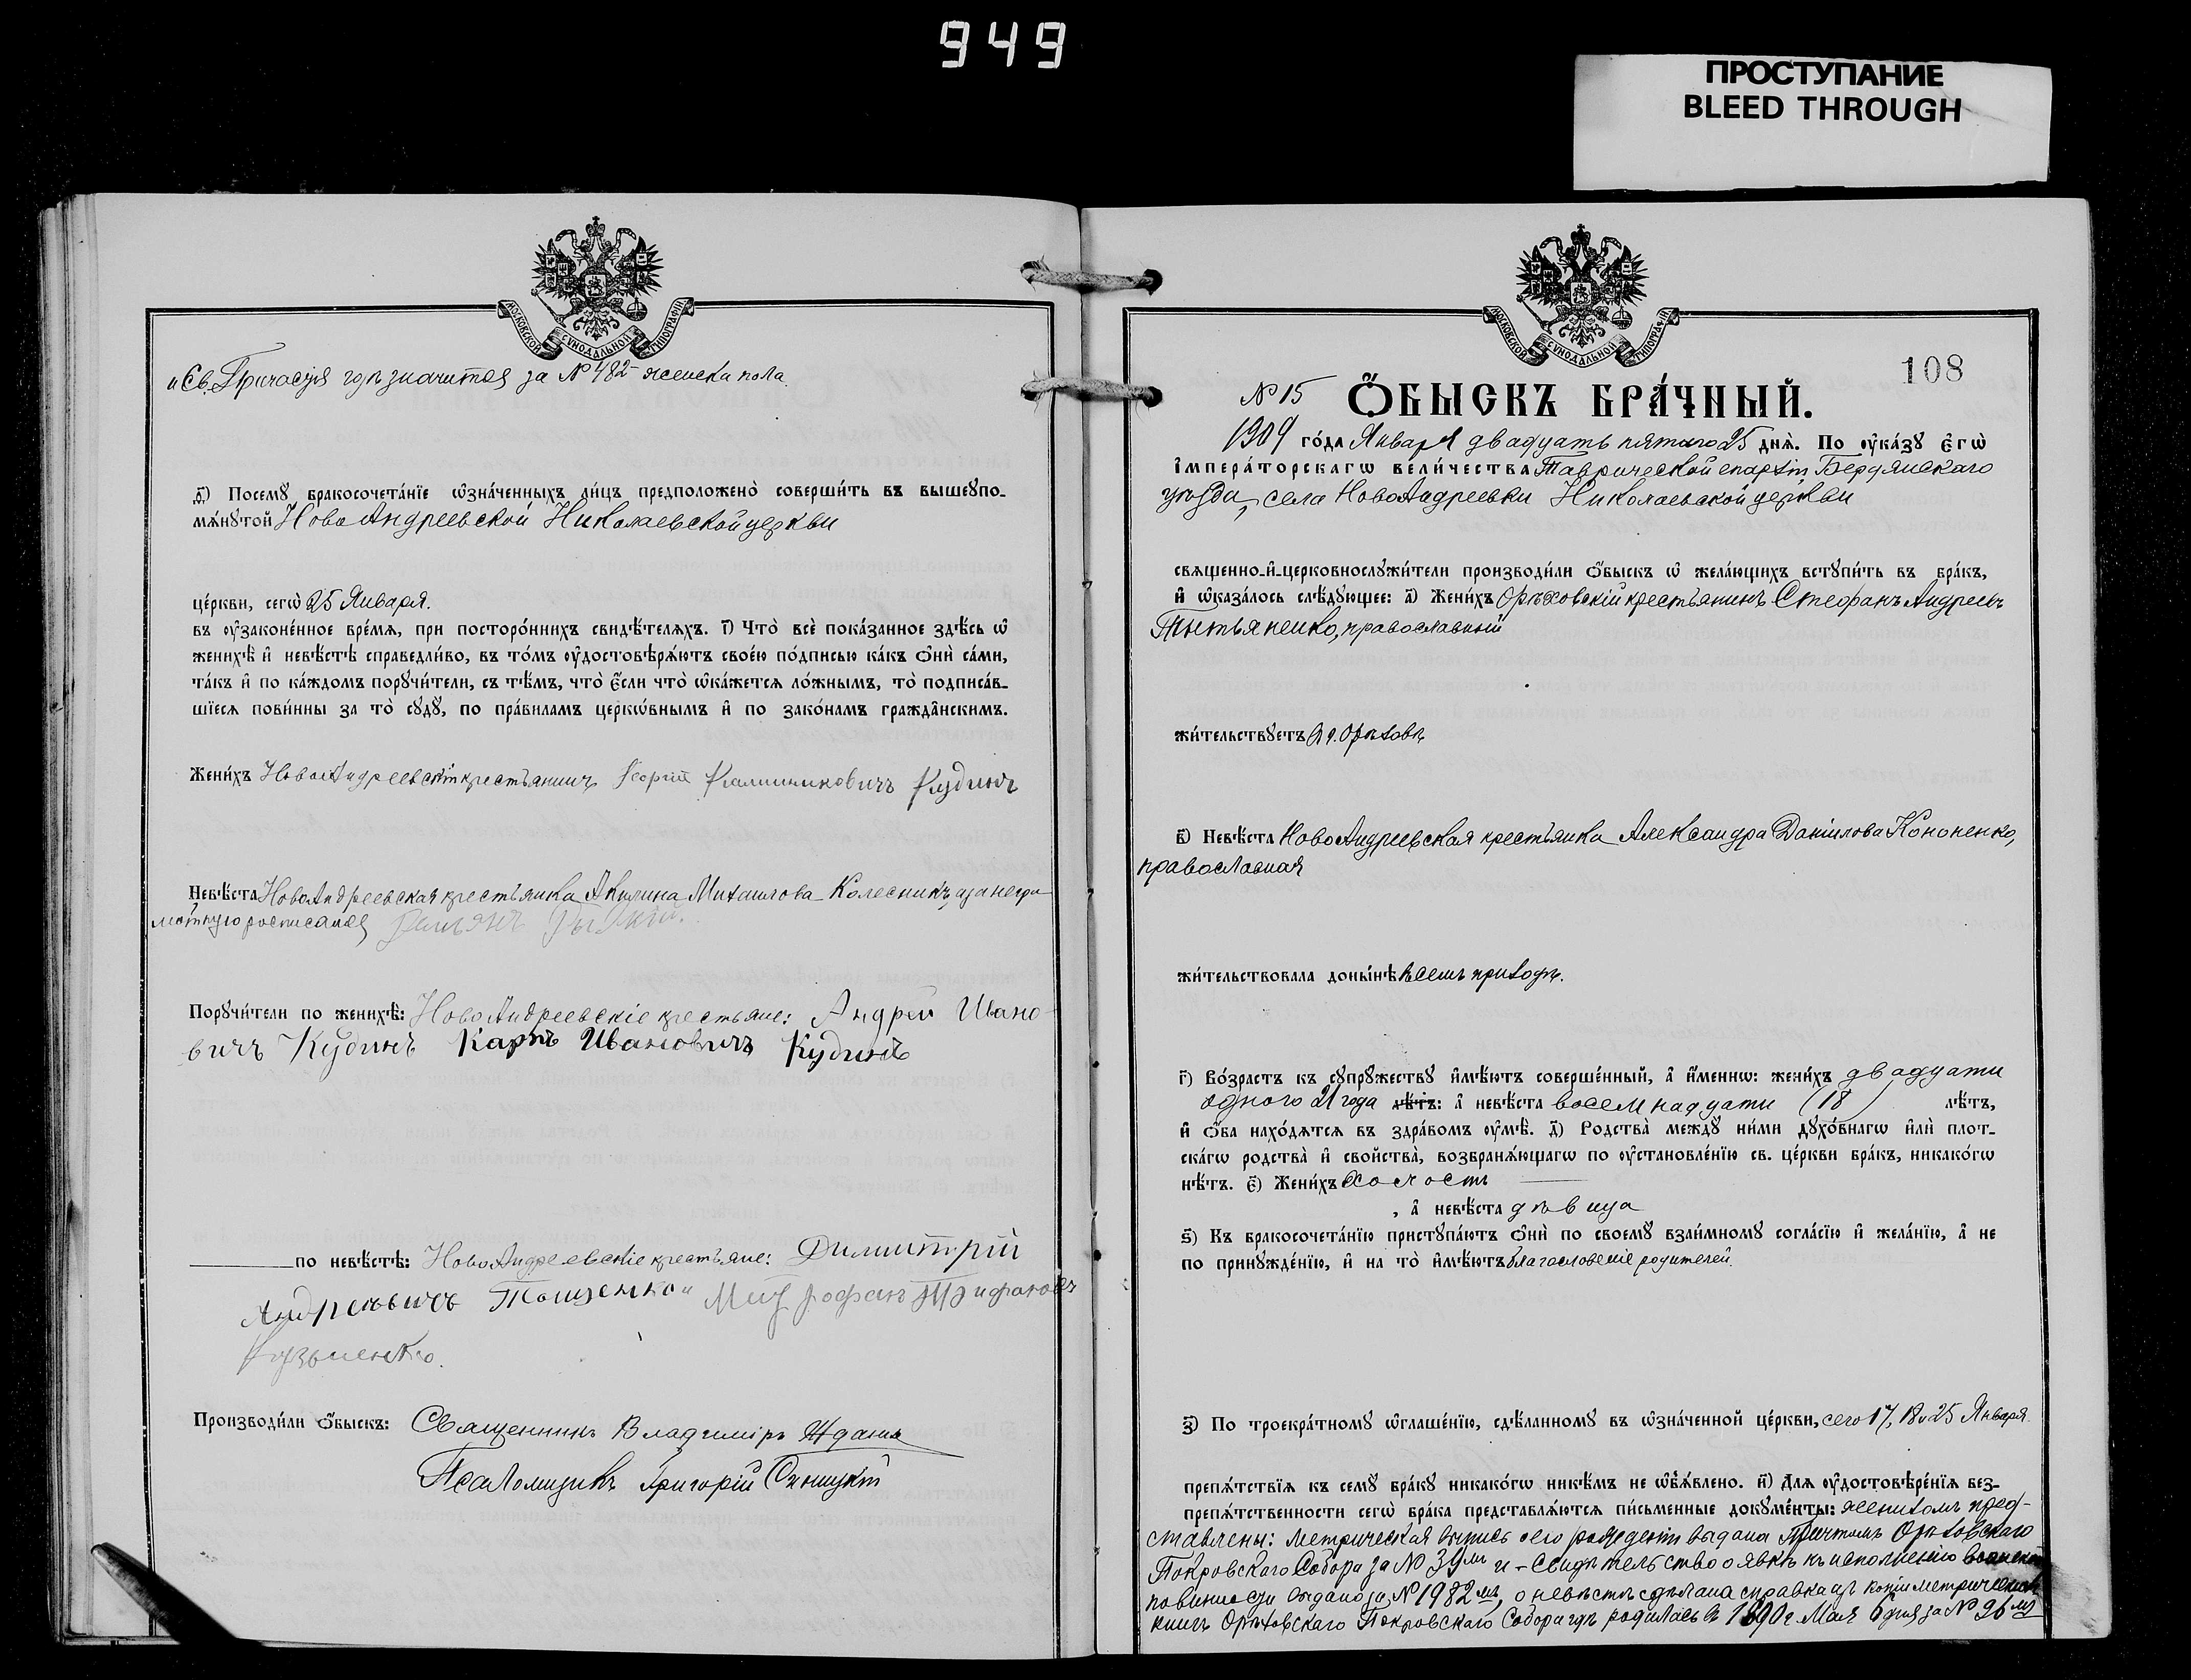 949
ПРОСТУПАНИЕ
BLEED THROUGH
МОСКОВСКОЙ СѴНОДАЛЬНОЙ ТИПОГРАФІИ
и Св. Причастія гдѣ значится за № 482 женска пола.
д҃) Посемꙋ бракосочета́нїе ѡ҆зна́ченныхъ ли́цъ предположено̀ соверши́ть въ вышеꙋпо-
мѧ́нꙋтой Ново Андреевской Николаевской церкви
це́ркви, сегѡ̀ 25 Января.
въ ᲂу҆законе́нное вре́мѧ, при посторо́ннихъ свидѣ́телѧхъ. і҃) Что̀ всѐ пока́занное здѣ́сь ѡ҆
женихѣ̀ и҆ невѣ́стѣ справедли́во, въ то́мъ ᲂу҆достовѣрѧ́ютъ свое́ю по́дписью ка́къ ѻ҆нѝ са́ми,
та́къ и҆ по ка́ждомъ порꙋчи́тели, съ тѣ́мъ, что̀ є҆́сли что̀ ѡ҆ка́жетсѧ ло́жнымъ, то̀ подписа́в-
шїесѧ пови́нны за то̀ сꙋдꙋ̀, по пра́виламъ церкѡ́внымъ и҆ по зако́намъ гражда̑нскимъ.
Жени́хъ НовоАндреевскій крестьянинъ Георгій Калинниковичъ Кудинъ
Невѣ́ста НовоАндреевская крестьянка Акилина Михаилова Колесникъ, а за негра
мотную росписался
Порꙋчи́тели по женихѣ̀: НовоАндреевскіе крестьяне: Андрей Ивано-
вичъ Кудинъ Карпъ Ивановичъ Кудинъ
по невѣ́стѣ: НовоАндреевскіе крестьяне: Димитрій
Андреевичъ Тощенко и Митрофанъ Трифановъ
Кузьменко.
Производи́ли ѻ҆́быскъ: Священникъ Владиміръ Ждана
Псаломщикъ Григорій Синицкій
МОСКОВСКОЙ СѴНОДАЛЬНОЙ ТИПОГРАФІИ
108
№ 15 Ѻ҆́БЫСКЪ БРА́ЧНЫЙ.
1909 го́да Января двадцать пятаго 25 днѧ̀. По ᲂу҆ка́зꙋ є҆гѡ̀
і҆мпера́торскагѡ вели́чества Таврической епархіи Бердянскаго
уѣзда, села НовоАндреевки Николаевской церкви
свѧщенно-и҆-церковнослꙋжи́тели производи́ли ѻ҆́быскъ ѡ҆ жела́ющихъ встꙋпи́ть въ бра́къ,
и҆ ѡ҆каза́лось слѣ́дꙋющее: а҃) Жени́хъ Орѣховскій крестьянинъ Стефанъ Андреевъ
Тытьяненко, православный
жи́тельствꙋетъ в г. Орѣховѣ
в҃) Невѣ́ста НовоАндреевская крестьянка Александра Даніилова Кононенко,
православная
жи́тельствовала доны́нѣ в семъ приходѣ.
г҃) Во́зрастъ къ сꙋпрꙋ́жествꙋ и҆мѣ́ютъ соверше́нный, а҆ и҆́меннѡ: жени́хъ двадцати
одного 21 года лѣ́тъ: а҆ невѣ́ста восемнадцати (18) лѣ́тъ,
и҆ ѻ҆́ба нахо́дѧтсѧ въ здра́вомъ ᲂу҆мѣ̀. д҃) Родства̀ междꙋ̀ ни́ми дꙋхо́внагѡ и҆лѝ плот-
ска́гѡ родства̀ и҆ свойства̀, возбранѧ́ющагѡ по ᲂу҆становле́нїю св. це́ркви бра́къ, никако́гѡ
нѣ́тъ. є҃) Жени́хъ холостъ
, а҆ невѣ́ста дѣвица
ѕ҃) Къ бракосочета́нїю пристꙋпа́ютъ ѻ҆нѝ по своемꙋ̀ взаи́мномꙋ согла́сїю и҆ жела́нїю, а҆ не
по принꙋжде́нїю, и҆ на то̀ и҆мѣ́ютъ благословеніе родителей.
з҃) По троекра́тномꙋ ѡ҆глаше́нїю, сдѣ́ланномꙋ въ ѡ҆зна́ченной це́ркви, сего 17, 18 и 25 Января.
препѧ́тствїѧ къ семꙋ̀ бра́кꙋ никако́гѡ никѣ́мъ не ѡ҆б̾ѧ́влено. и҃) Длѧ ᲂу҆достовѣре́нїѧ без-
препѧ́тственности сегѡ̀ бра́ка представлѧ́ютсѧ пи́сьменные докꙋме́нты: женихомъ пред-
ставлены: метрическая выпись о его рожденіи выдана Причтомъ Орѣховскаго
Покровскаго Собора за № 39мъ и - Свидѣтельство о явкѣ къ исполненію воинской
повинности выдано за № 1982мъ, о невѣстѣ сдѣлана справка изъ копіи метрическихъ
книгъ Орѣховскаго Покровскаго Собора гдѣ родилась въ 1890 г. Мая 6 дня за № 96мъ